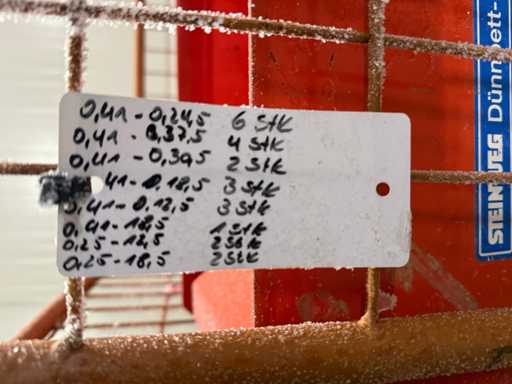 0,41 - 0,24,5 6 Stk
0,41 - 0,37,5 4 Stk
0,41 - 0,305 2 Stk
41 - 0,18,5 3 Stk
0,41 - 0,12,5 3 Stk
0,41 - 18,5 1 Stk
0,25 - 12,5 2 Stk
0,25 - 18,5 2 Stk
STEINWEG Dünnbett-